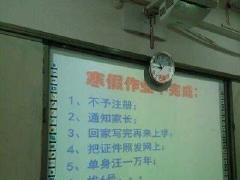 寒假作业不完成：
1、不予注册；
2、通知家长；
3、回家写完再来上学；
4、把证件照发网上；
5、单身汪一万年；